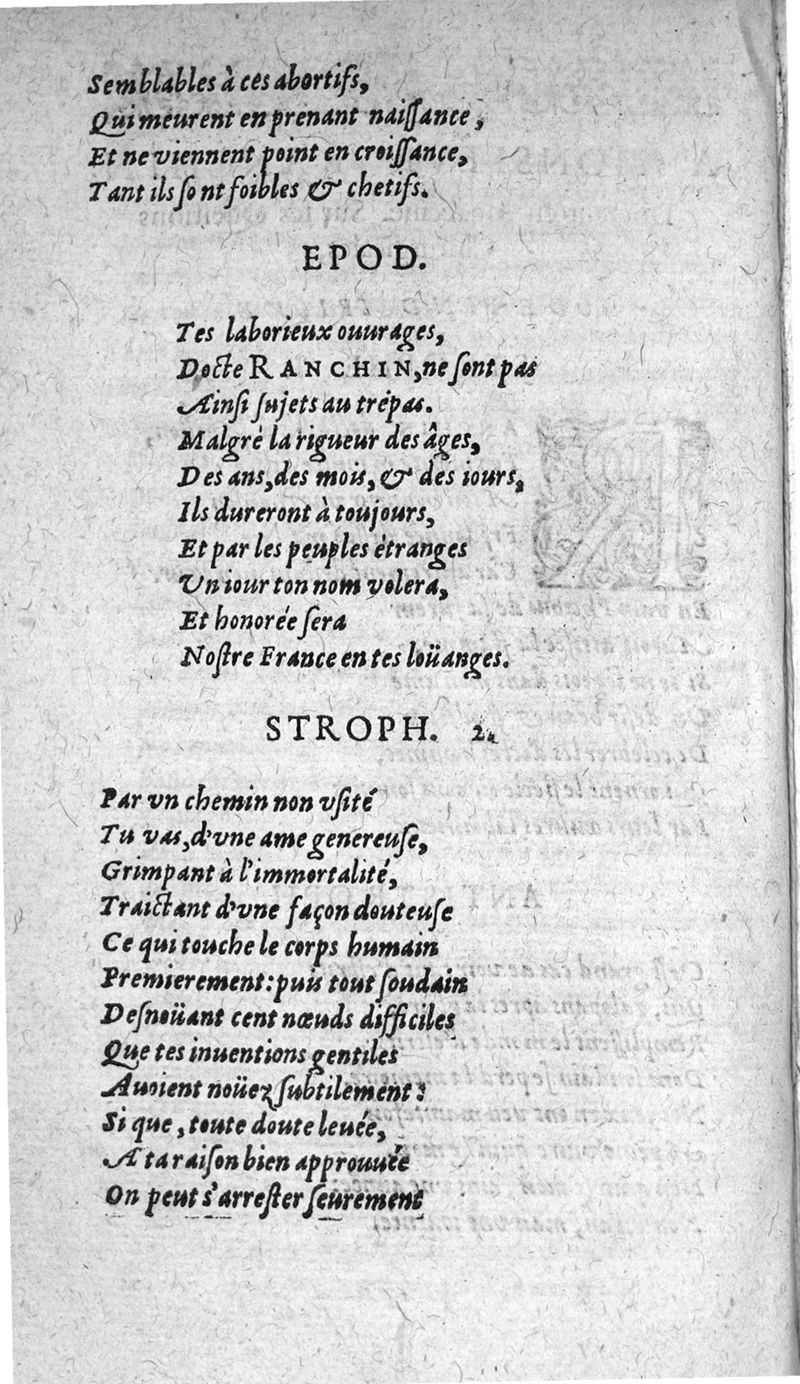 Semblables à ces abortifs,
Qui meurent en prenant naiſſance,
Et ne viennent point en croiſſance,
Tant ils ſont foibles & chetifs.
EPOD.
Tes laborieux ouurages,
Docte RANCHIN, ne ſont pas
Ainſi ſujets au trépas.
Malgré la rigueur des âges,
Des ans, des mois, & des iours,
Ils dureront à toujours,
Et par les peuples étranges
Vn iour ton nom volera,
Et honorée ſera
Noſtre France en tes loüanges.
STROPH. 2.
Par vn chemin non vſité
Tu vas, d'vne ame genereuſe,
Grimpant à l'immortalité,
Traictant d'vne façon douteuſe
Ce qui touche le corps humain
Premierement: puis tout ſoudain
Deſnoüant cent nœuds difficiles
Que tes inuentions gentiles
Auoient noüez ſubtilement:
Si que, toute doute leuée,
A ta raiſon bien approuuée
On peut s'arreſter ſeurement